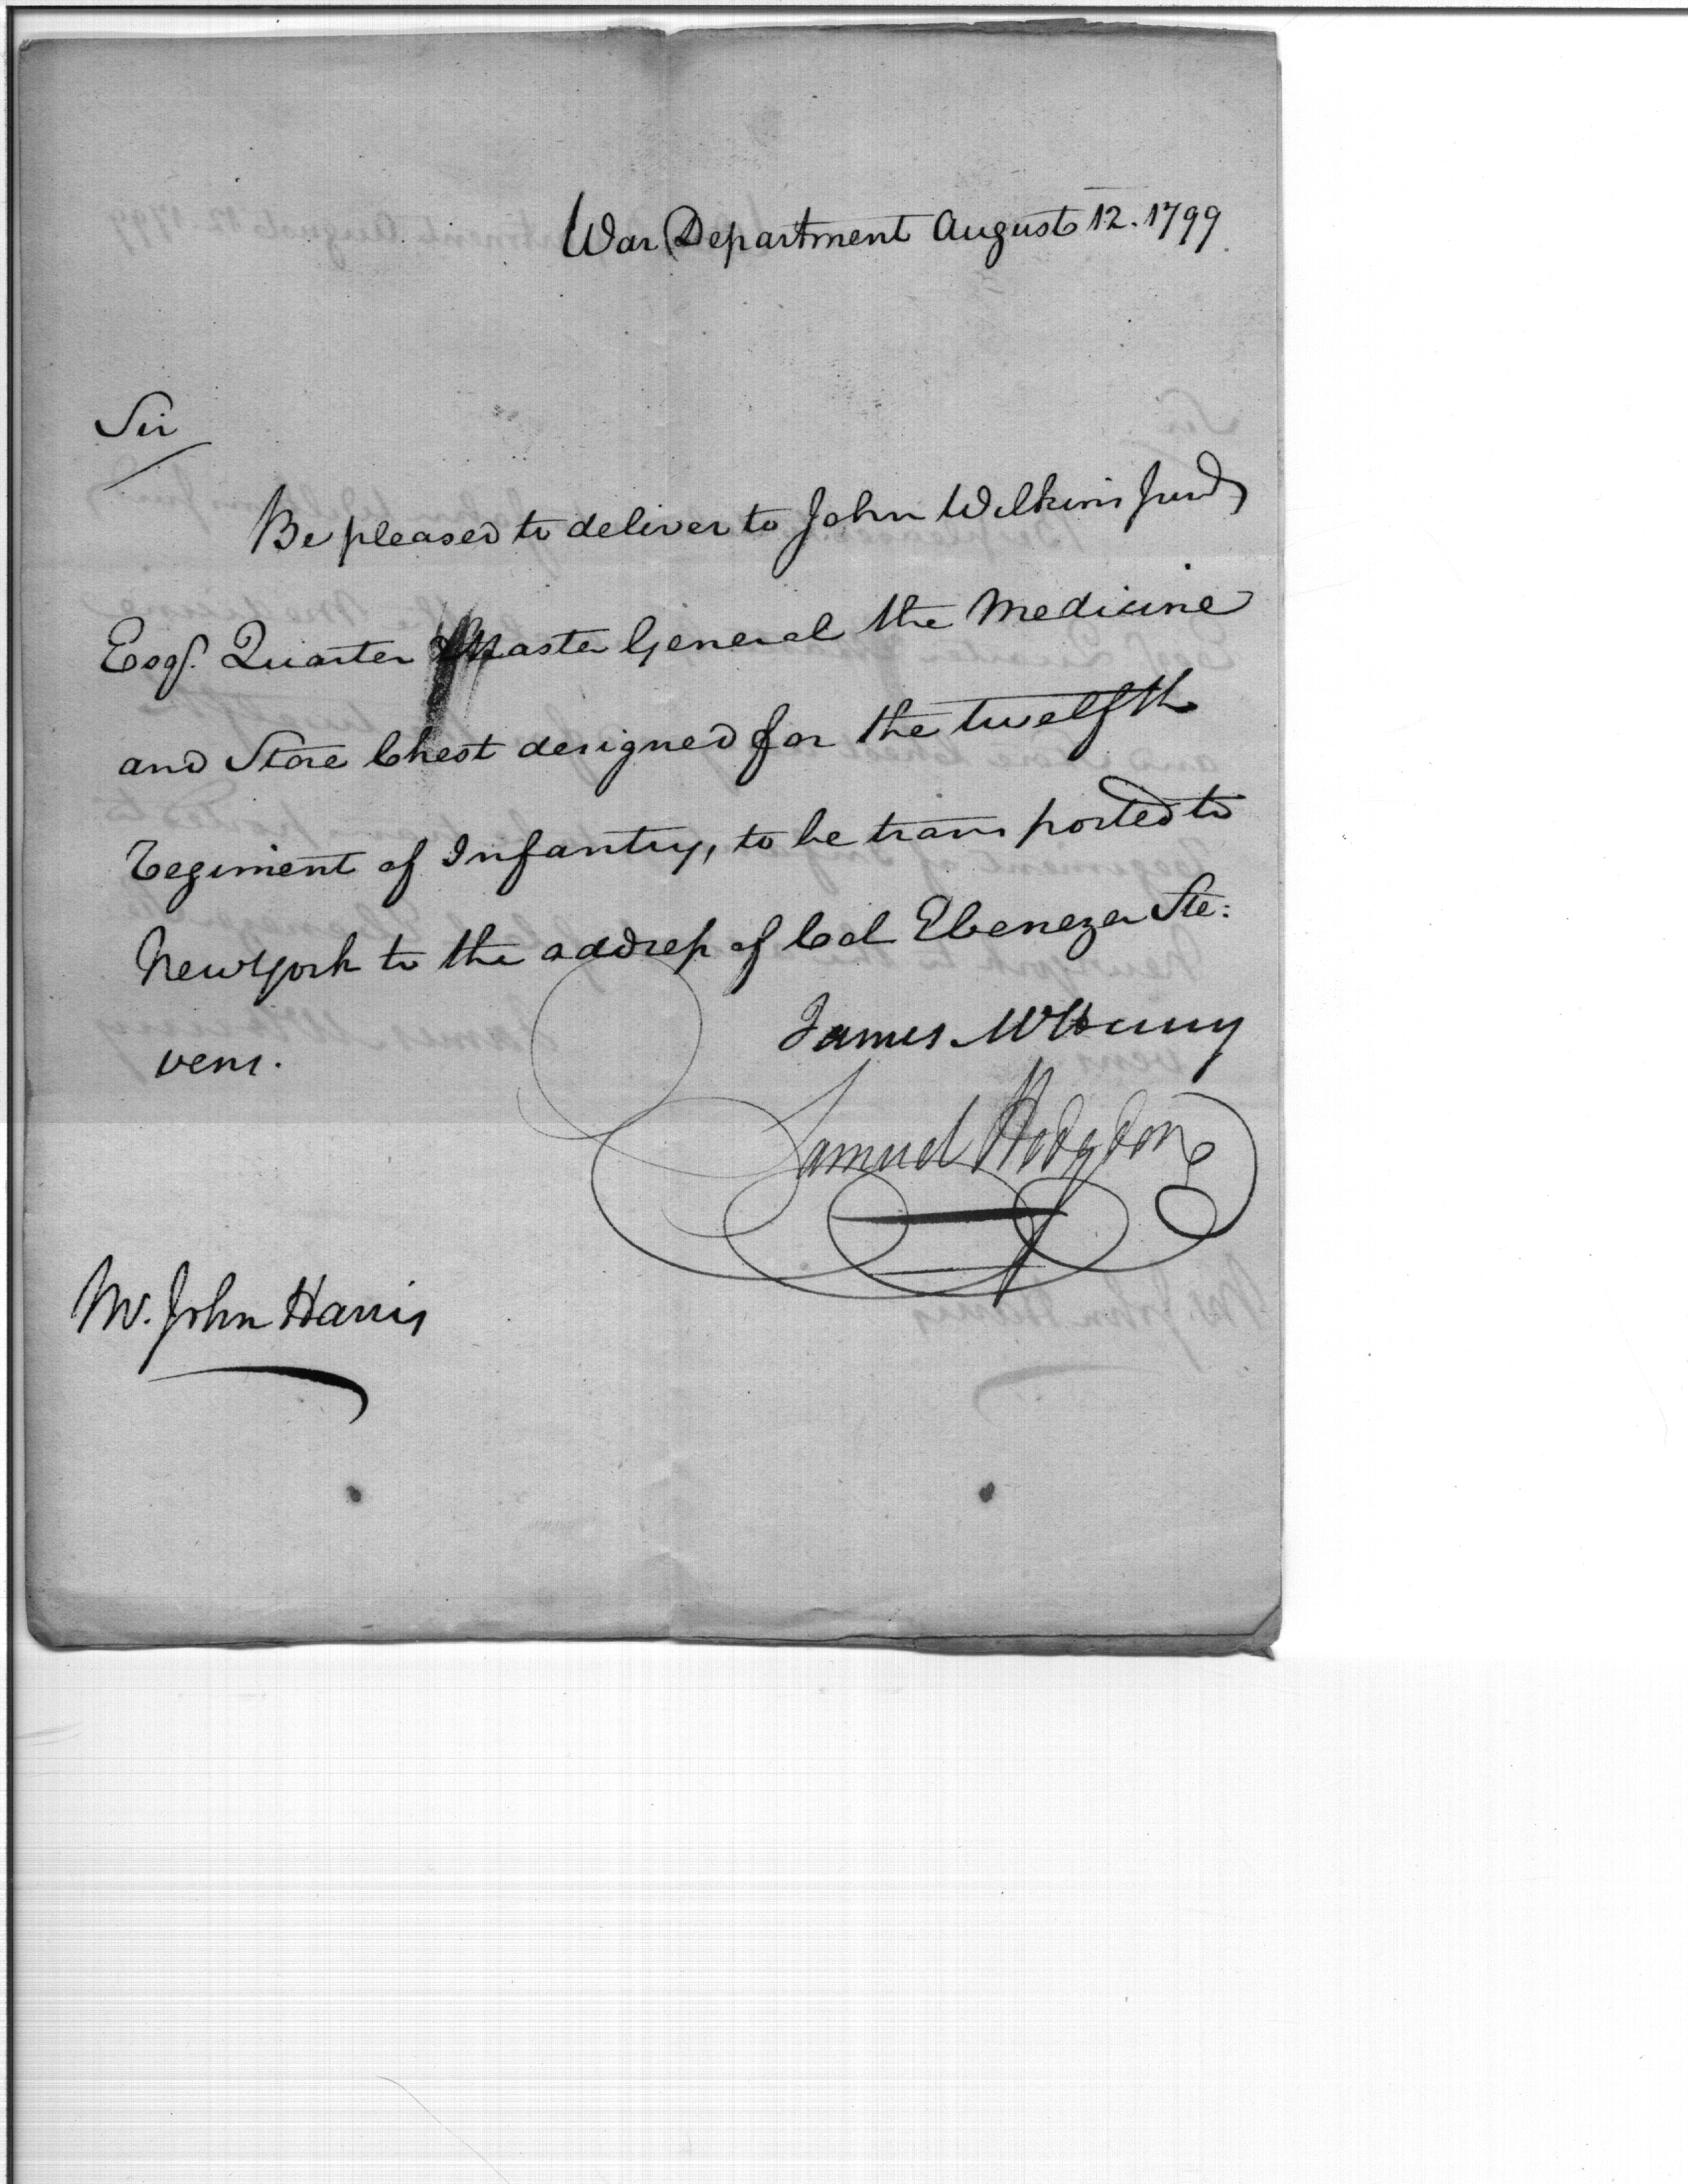 War Department August 12. 1799
Sir
Be pleased to deliver to John Wilkins Junr
Esqr. Quarter Master General the Medicine
and Store Chest designed for the twelfth
Regiment of Infantry, to be transported to
New York to the address of Col Ebenezer Ste:
vens.
James McHenry
Samuel Hodgdon
Mr. John Harris